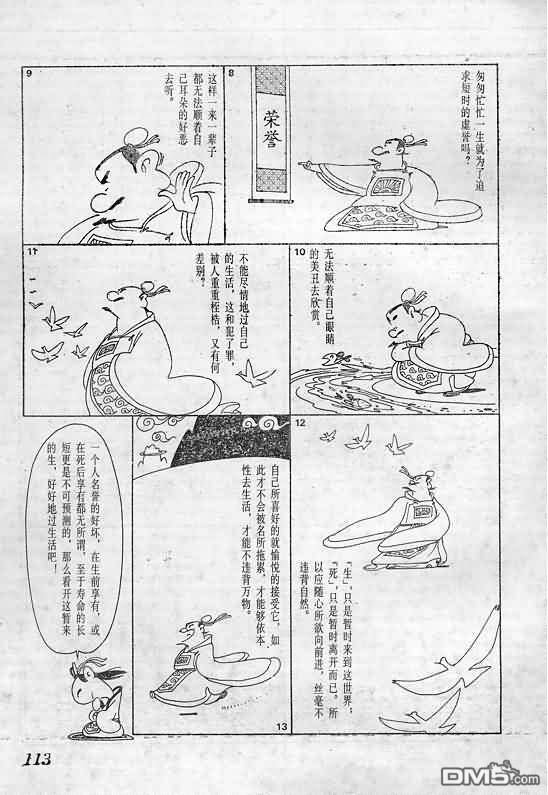 8
匆匆忙忙一生就为了追
求短时的虚誉吗？
荣誉
9
这样一来一辈子
都无法顺着自
己耳朵的好恶
去听。
10
无法顺着自己眼睛
的美丑去欣赏。
11
不能尽情地过自己
的生活，这和犯了罪，
被人重重桎梏，又有何
差别？
12
『生』，只是暂时来到这世界；
『死』，只是暂时离开而已。所
以应随心所欲向前进，丝毫不
违背自然。
自己所喜好的就愉悦的接受它，如
此才不会被名所拖累，才能够依本
性去生活，才能不违背万物。
13
一个人名誉的好坏，在生前享有，或
在死后享有都无所谓，至于寿命的长
短更是不可预测的，那么看开这暂来
的生，好好地过生活吧！
113
DM5.com
动漫屋